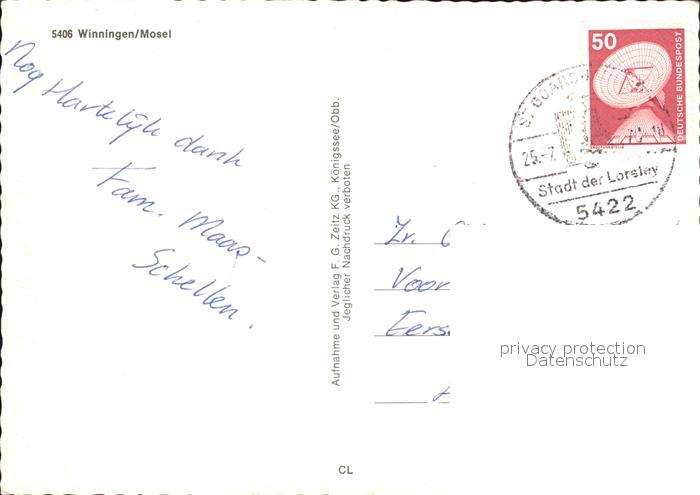 5406 Winningen/Mosel
Nog Hartelijk dank
Fam. Maas-
Schellen.
Aufnahme und Verlag F. G. Zeitz KG., Königssee/Obb.
Jeglicher Nachdruck verboten
CL
50
DEUTSCHE BUNDESPOST
ST GOARSH
25.-7.
Stadt der Loreley
5422
Zr.
Voor
Eers
privacy protection
Datenschutz